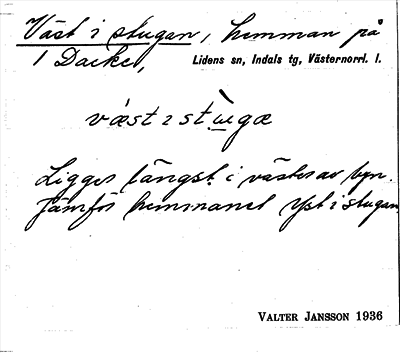 Väst i stugan, hemman på
1 Dacke, Lidens sn, Indals tg, Västernorrl. l.
väst ɪ stɯgæ
Ligger längst i väster av byn.
Jämför hemmanet Yst i stugan
VALTER JANSSON 1936